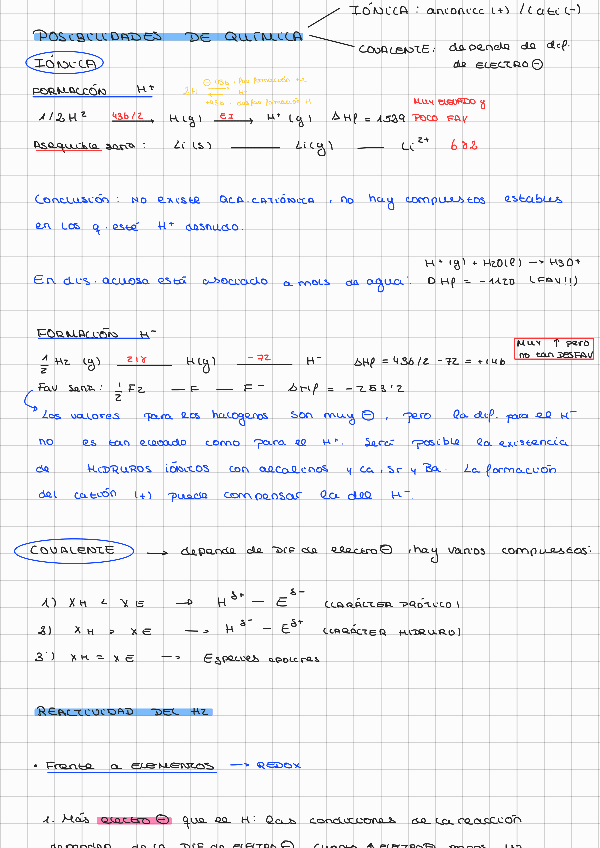 IÓNICA: aniónica (+) / cati (-)
POSIBILIDADES DE QUÍMICA
COVALENTE: depende de dif.
de ELECTRO⊖
IÓNICA
FORMACIÓN H⁺
1/2H² 436/2 → H(g) EI → H⁺(g) ΔHf = 1539 MUY ELEVADO y POCO FAV
Asequible sería: Li(s) —— Li(g) —— Li²⁺ 682
Conclusión: NO EXISTE QCA. CATIÓNICA, no hay compuestos estables
en los q. esté H⁺ desnudo.
H⁺(g) + H2O(l) → H3O⁺
En dis. acuosa está asociado a mols de agua: ΔHf = -1120 (FAV!!)
FORMACIÓN H⁻
1/2 H2 (g) 218 H(g) -72 H⁻ ΔHf = 436/2 -72 = +146
MUY ↑ pero
no tan DESFAV
Fav sería: 1/2 F2 — F — F⁻ ΔHf = -253'2
Los valores para los halógenos son muy ⊖, pero la dif. para el H⁻
no es tan elevado como para el H⁺. Será posible la existencia
de HIDRUROS IÓNICOS con alcalinos y Ca, Sr y Ba. La formación
del catión (+) puede compensar la del H⁻.
COVALENTE → depende de DIF de electro⊖, hay varios compuestos:
1) XH < XE → H^δ+ — E^δ- (CARÁCTER PRÓTICO)
2) XH > XE → H^δ- — E^δ+ (CARÁCTER HIDRURO)
3) XH = XE → Especies apolares
REACTIVIDAD DEL H2
• Frente a ELEMENTOS → REDOX
1. Más electro⊖ que el H: las condiciones de la reacción